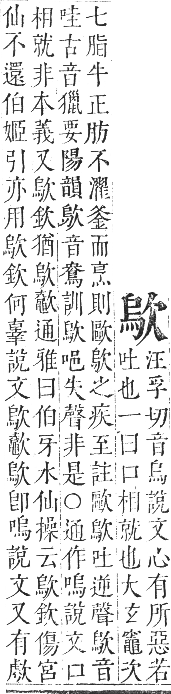 歍汪孚切音烏說文心有所惡若
吐也一曰口相就也大玄竈次
七脂牛正肪不濯釜而烹則歐歍之疾至註歐歍吐逆聲歍音
哇古音獵要陽韻歍音鴦訓歍唈失聲非是○通作嗚說文口
相就非本義又歍欽猶歍歔通雅曰伯牙水仙操云歍欽傷宮
仙不還伯姬引亦用歍欽何辜說文歍歔歍卽嗚說文又有